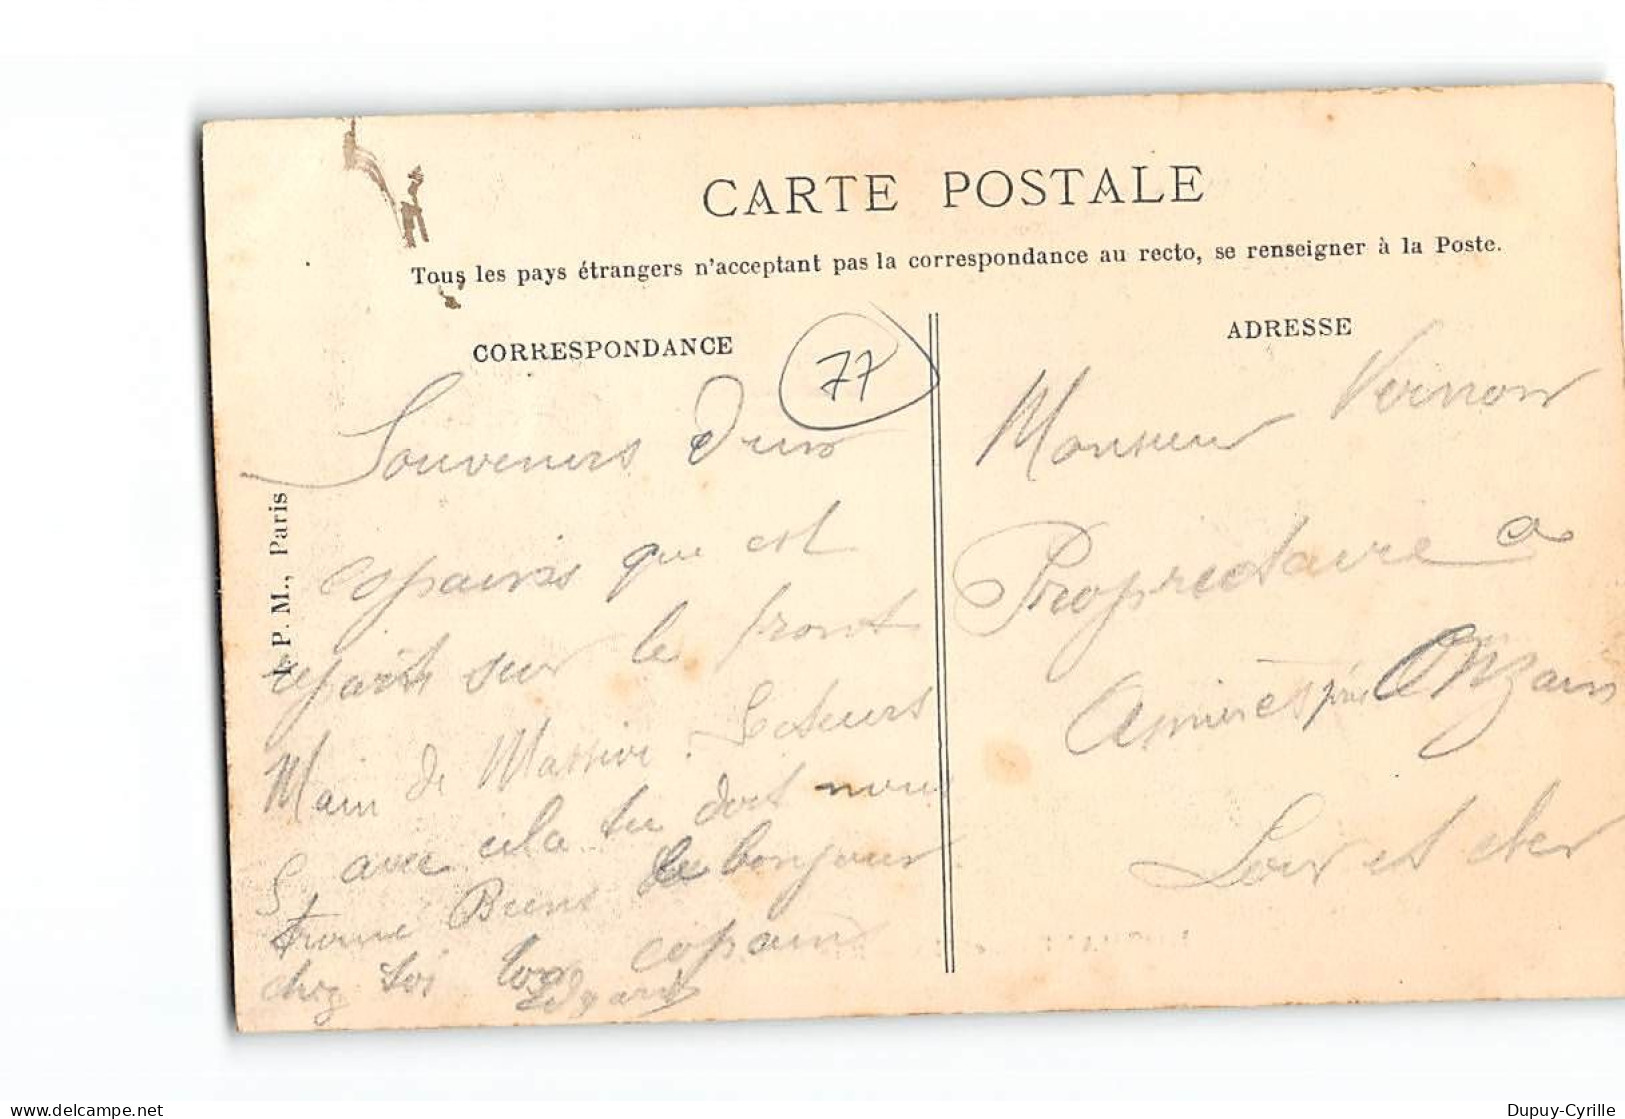 CARTE POSTALE
Tous les pays étrangers n'acceptant pas la correspondance au recto, se renseigner à la Poste.
CORRESPONDANCE
77
Souvenirs d'un
copains qui est
sur le front
Main de Massive. Secteurs
avec cela tu doit nous
Biens le bonjour
chez toi ton copain
Edgard
I. P. M., Paris
ADRESSE
Monsieur Vernon
Proprietaire a
près Onzain
Loir et cher
Dupuy-Cyrille